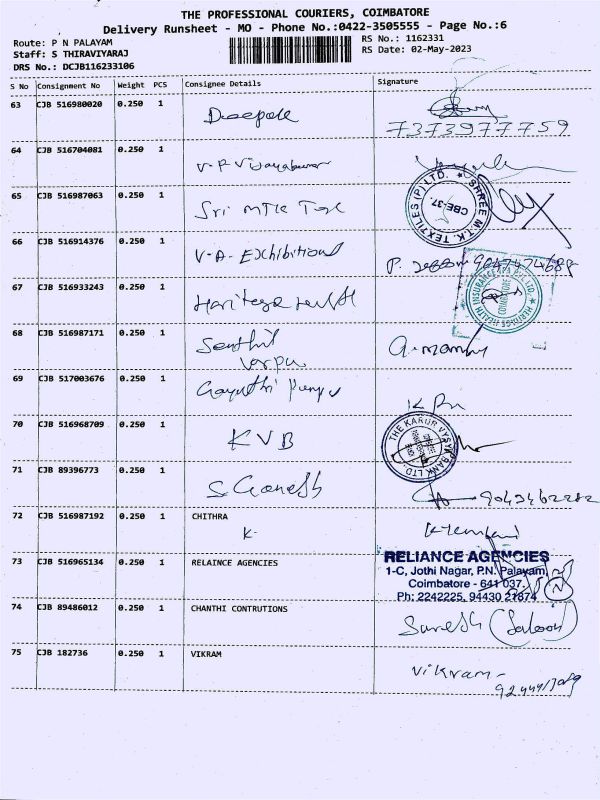 THE PROFESSIONAL COURIERS, COIMBATORE
Delivery Runsheet - MO - Phone No.:0422-3505555 - Page No.:6
Route: P N PALAYAM
RS No.: 1162331
Staff: S THIRAVIYARAJ
RS Date: 02-May-2023
DRS No.: DCJB116233106
S No Consignment No Weight PCS Consignee Details Signature
63 CJB 516980020 0.250 1 Deepak
7373977759
64 CJB 516704081 0.250 1 V-P Vijayakumar
65 CJB 516987063 0.250 1 Sri MTK Tex
SHREE M.T.K. TEXTILES (P) LTD. CBE-37.
66 CJB 516914376 0.250 1 V-A- Exhibitions
P.
67 CJB 516933243 0.250 1
HEALTH INSURANCE TPA PVT. LTD. COIMBATORE
68 CJB 516987171 0.250 1 Senthil
69 CJB 517003676 0.250 1 Gayathri
70 CJB 516968709 0.250 1 KVB
THE KARUR VYSYA BANK LTD.
71 CJB 89396773 0.250 1 S Ganesh
72 CJB 516987192 0.250 1 CHITHRA
K-
73 CJB 516965134 0.250 1 RELAINCE AGENCIES
RELIANCE AGENCIES
1-C, Jothi Nagar, P.N. Palayam,
Coimbatore - 641 037.
Ph: 2242225, 94430 21874
74 CJB 89486012 0.250 1 CHANTHI CONTRUTIONS
Suresh (Saloon)
75 CJB 182736 0.250 1 VIKRAM
Vikram -